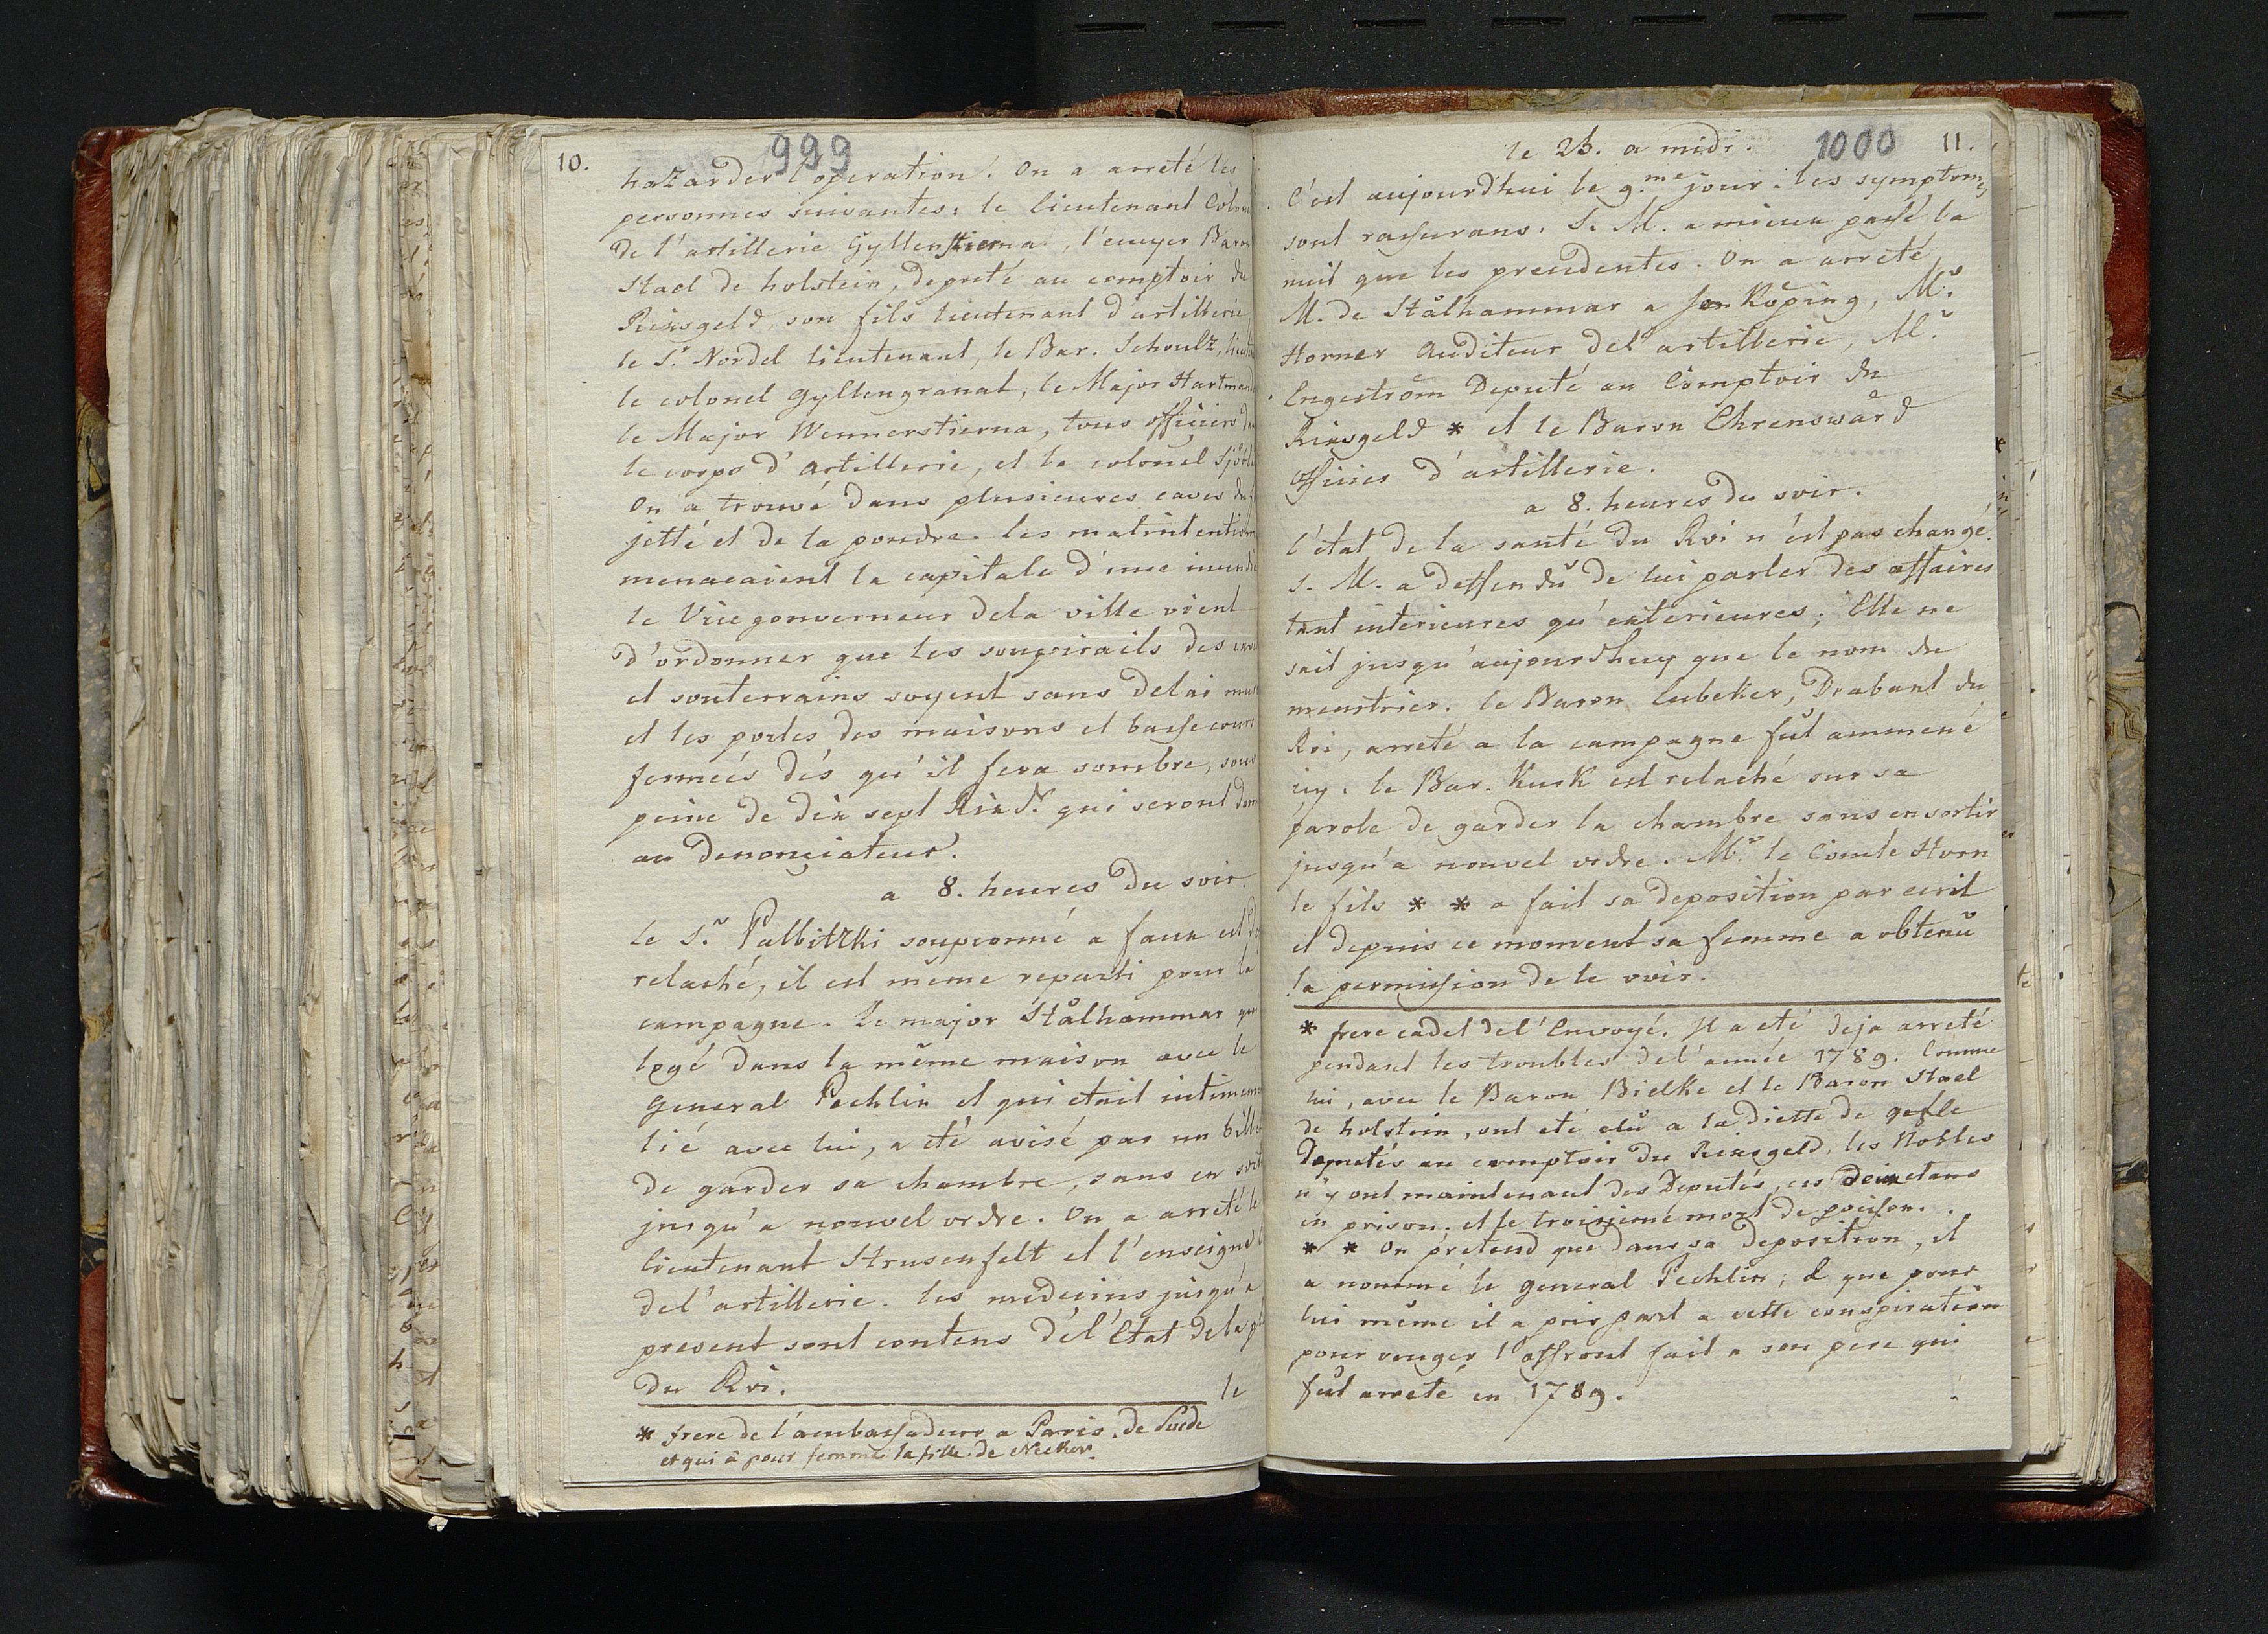 10.
999
hazarder l'operation. On a arreté les
personnes suivantes: le lieutenant Colon
de l'artillerie Gyllenstierna, l'ecuyer Baro
Stael de holstein, deputé au comptoir du
Rixsgeld, son fils lieutenant d'artillerie,
le Sr. Nordel lieutenant, le Bar. Schoulz,
le colonel Gyllengranat, le Major Hartman
le Major Wennerstierna, tous officiers
le corps d'artillerie, et le colonel
On a trouvé dans plusieures caves du
jetté et de la poudre. les malintention
menacaient la capitale d'une incendie
le Vice gouverneur dela ville vient
d'ordonner que les soupirails des cave
et souterrains soyent sans delai mur
et les portes des maisons et basse cours
fermeés dés qu'il fera sombre, sous
peine de dix sept Rixdr. qui seront donn
au denonciateur.
a 8. heures du soir.
le Sr. Palbitzki soupconné a faux est
relaché, il est même reparti pour la
campagne. Le major Stålhammar
logé dans la même maison avec le
General Pechlin et qui etait intimeme
lié avec lui, a eté avisé par un bill
de garder sa chambre, sans en sort
jusqu'a nouvel ordre. On a arreté le
lieutenant Strusenfelt et l'enseigne
del'artillerie. les médecins jusqu'a
present sont contens dél'Etat dela pl
du Roi.
le
* frere de l'ambassadeur a Paris, de Suede
et qui à pour femme la fille de Necker.
le 23. a midi.
1000
11.
C'est aujourd'hui le 9.me jour: les symptomes
sont rassurans. S. M. a mieux passé la
nuit que les precedentes. On a arreté
M. de Stålhammar a Jonköping, Mr.
Horner Auditeur del'artillerie, Mr.
Engeström Deputé au Comptoir du
Rixsgeld * et le Baron Ehrenswärd
officier d'artillerie.
a 8. heures du soir.
l'état de la santé du Roi n'est pas changé.
S. M. a deffendŭ de lui parler des affaires
tant interieures qu'exterieures; Elle ne
sait jusqu'aujourdhuy que le nom du
meurtrier. le Baron Lubeker, Drabant du
Roi, arreté a la campagne fut ammené
icy. le Bar. Kurk est relaché sur sa
parole de garder la chambre sans en sortir
jusqu'a nouvel ordre. Mr. le Comte Horn
le fils * * a fait sa deposition par ecrit
et depuis ce moment sa femme a obtenŭ
la permission de le voir.
* frere cadet del'Envoyé. Il a eté deja arreté
pendant les troubles del'année 1789. Comme
lui, avec le Baron Bielke et le Baron Stael
de holstein, ont eté elŭ a la diette de gefle
Deputés au comptoir du Rixsgeld, les Nobles
n'y ont maintenant des Deputés, ces deux etans
en prison, et le troisiemé mort de poison.
* * On prétend que dans sa deposition, il
a nommé le general Pechlin; & que pour
lui même il a pris part a cette conspiration
pour venger l'affront fait a son pere qui
fut arreté en 1789.